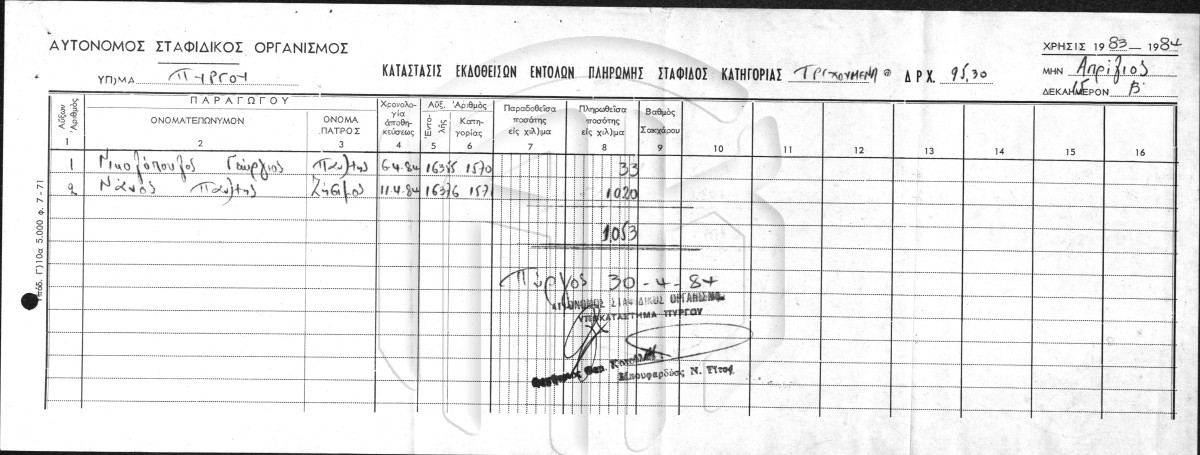 ΑΥΤΟΝΟΜΟΣ ΣΤΑΦΙΔΙΚΟΣ ΟΡΓΑΝΙΣΜΟΣ
ΥΠ)ΜΑ ΠΥΡΓΟΥ
ΚΑΤΑΣΤΑΣΙΣ ΕΚΔΟΘΕΙΣΩΝ ΕΝΤΟΛΩΝ ΠΛΗΡΩΜΗΣ ΣΤΑΦΙΔΟΣ ΚΑΤΗΓΟΡΙΑΣ ΔΡΧ. 95,30
ΧΡΗΣΙΣ 1983 — 1984
ΜΗΝ Απρίλιος
ΔΕΚΑΗΜΕΡΟΝ Β
Αὔξων Ἀριθμὸς
ΠΑΡΑΓΩΓΟΥ
ΟΝΟΜΑΤΕΠΩΝΥΜΟΝ
ΟΝΟΜΑ ΠΑΤΡΟΣ
Χρονολογία ἀποθηκεύσεως
Αὔξ. Ἀριθμὸς
Ἐντολῆς
Κατηγορίας
Παραδοθεῖσα ποσότης εἰς χιλ)μα
Πληρωθεῖσα ποσότης εἰς χιλ)μα
Βαθμὸς Σακχάρου
1 2 3 4 5 6 7 8 9 10 11 12 13 14 15 16
1 Νικολόπουλος Γεώργιος Παν/της 6-4-84 16355 1570 33
2 Νάνος Παν/της 11-4-84 16376 157 1020
1.053
Πύργος 30-4-84
ΑΥΤΟΝΟΜΟΣ ΣΤΑΦΙΔΙΚΟΣ ΟΡΓΑΝΙΣΜΟΣ
ΥΠΟΚΑΤΑΣΤΗΜΑ ΠΥΡΓΟΥ
Μπουφαρδῦος Ν.
5.000 φ. 7-71